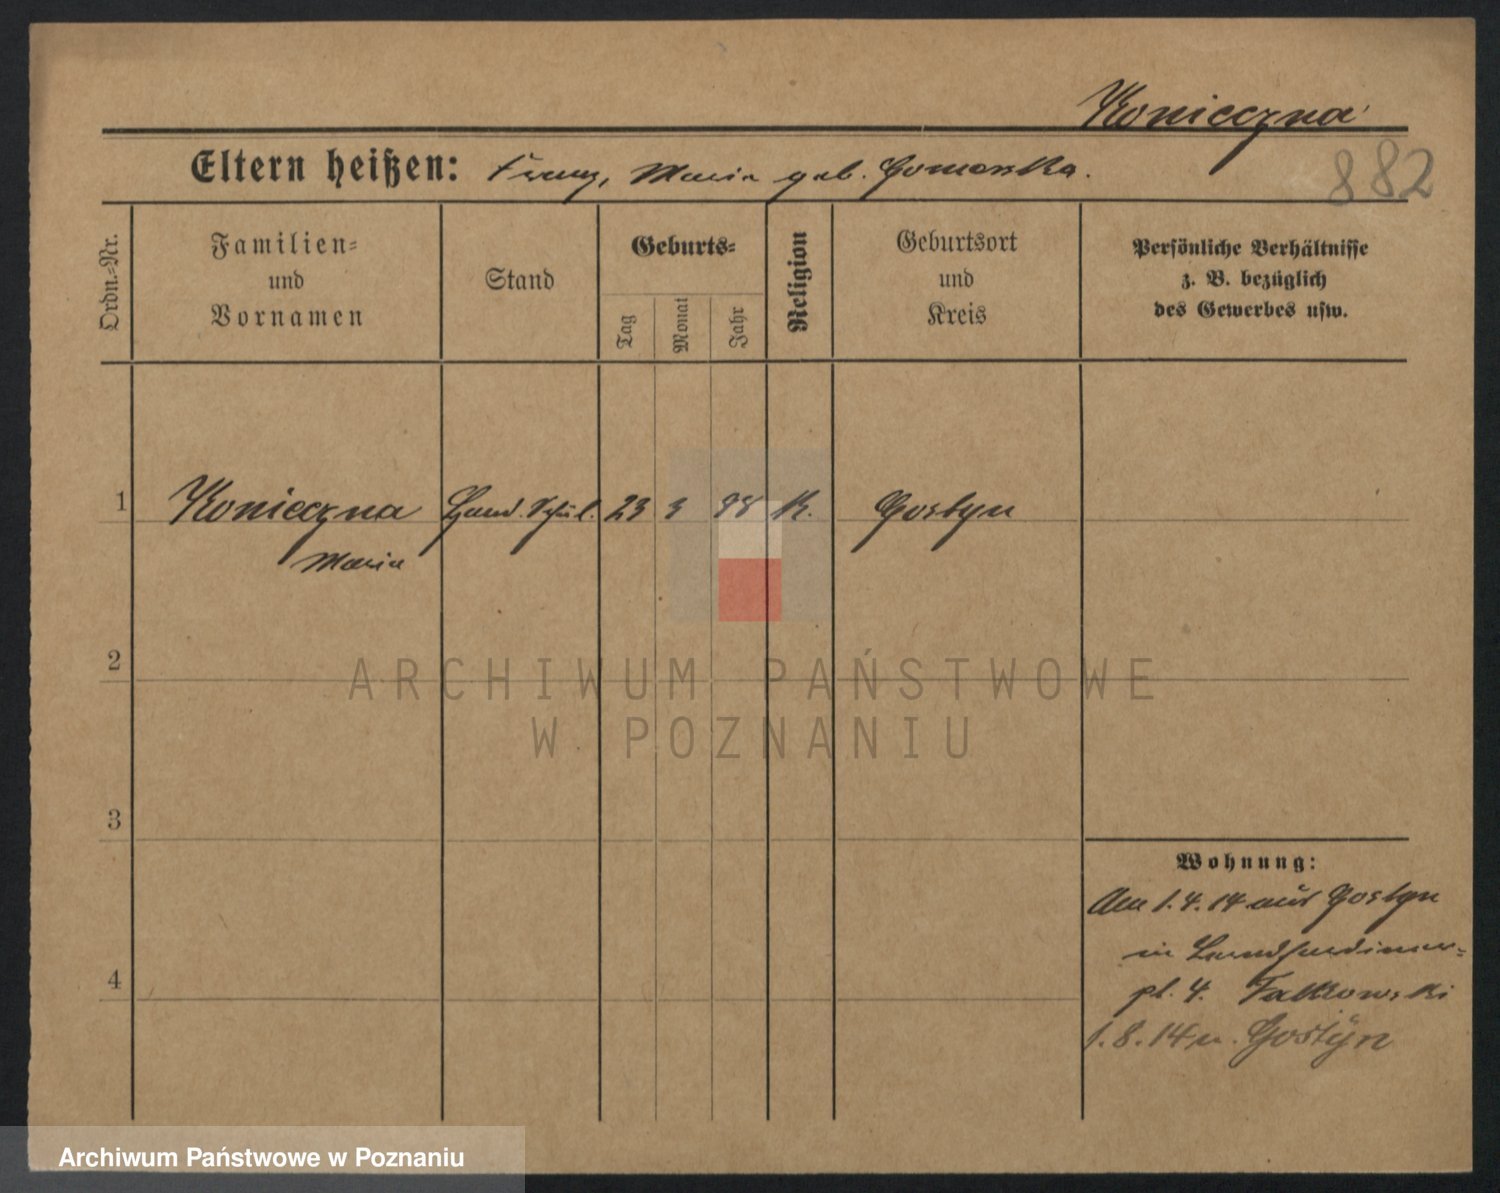 Konieczna
882
Eltern heißen: Franz, Maria geb.
Ordn.-Nr.
Familien- und Vornamen
Stand
Geburts-
Tag
Monat
Jahr
Religion
Geburtsort und Kreis
Persönliche Verhältnisse
z. B. bezüglich
des Gewerbes usw.
1 Konieczna Hand. Schül. 23 3 98 K. Gostyn
Maria
2
3
4
Wohnung:
Am 1.4.14 aus Gostyn
in
pl. 4. Falkowski
1.8.14 n. Gostyn
ARCHIWUM PAŃSTWOWE
W POZNANIU
Archiwum Państwowe w Poznaniu